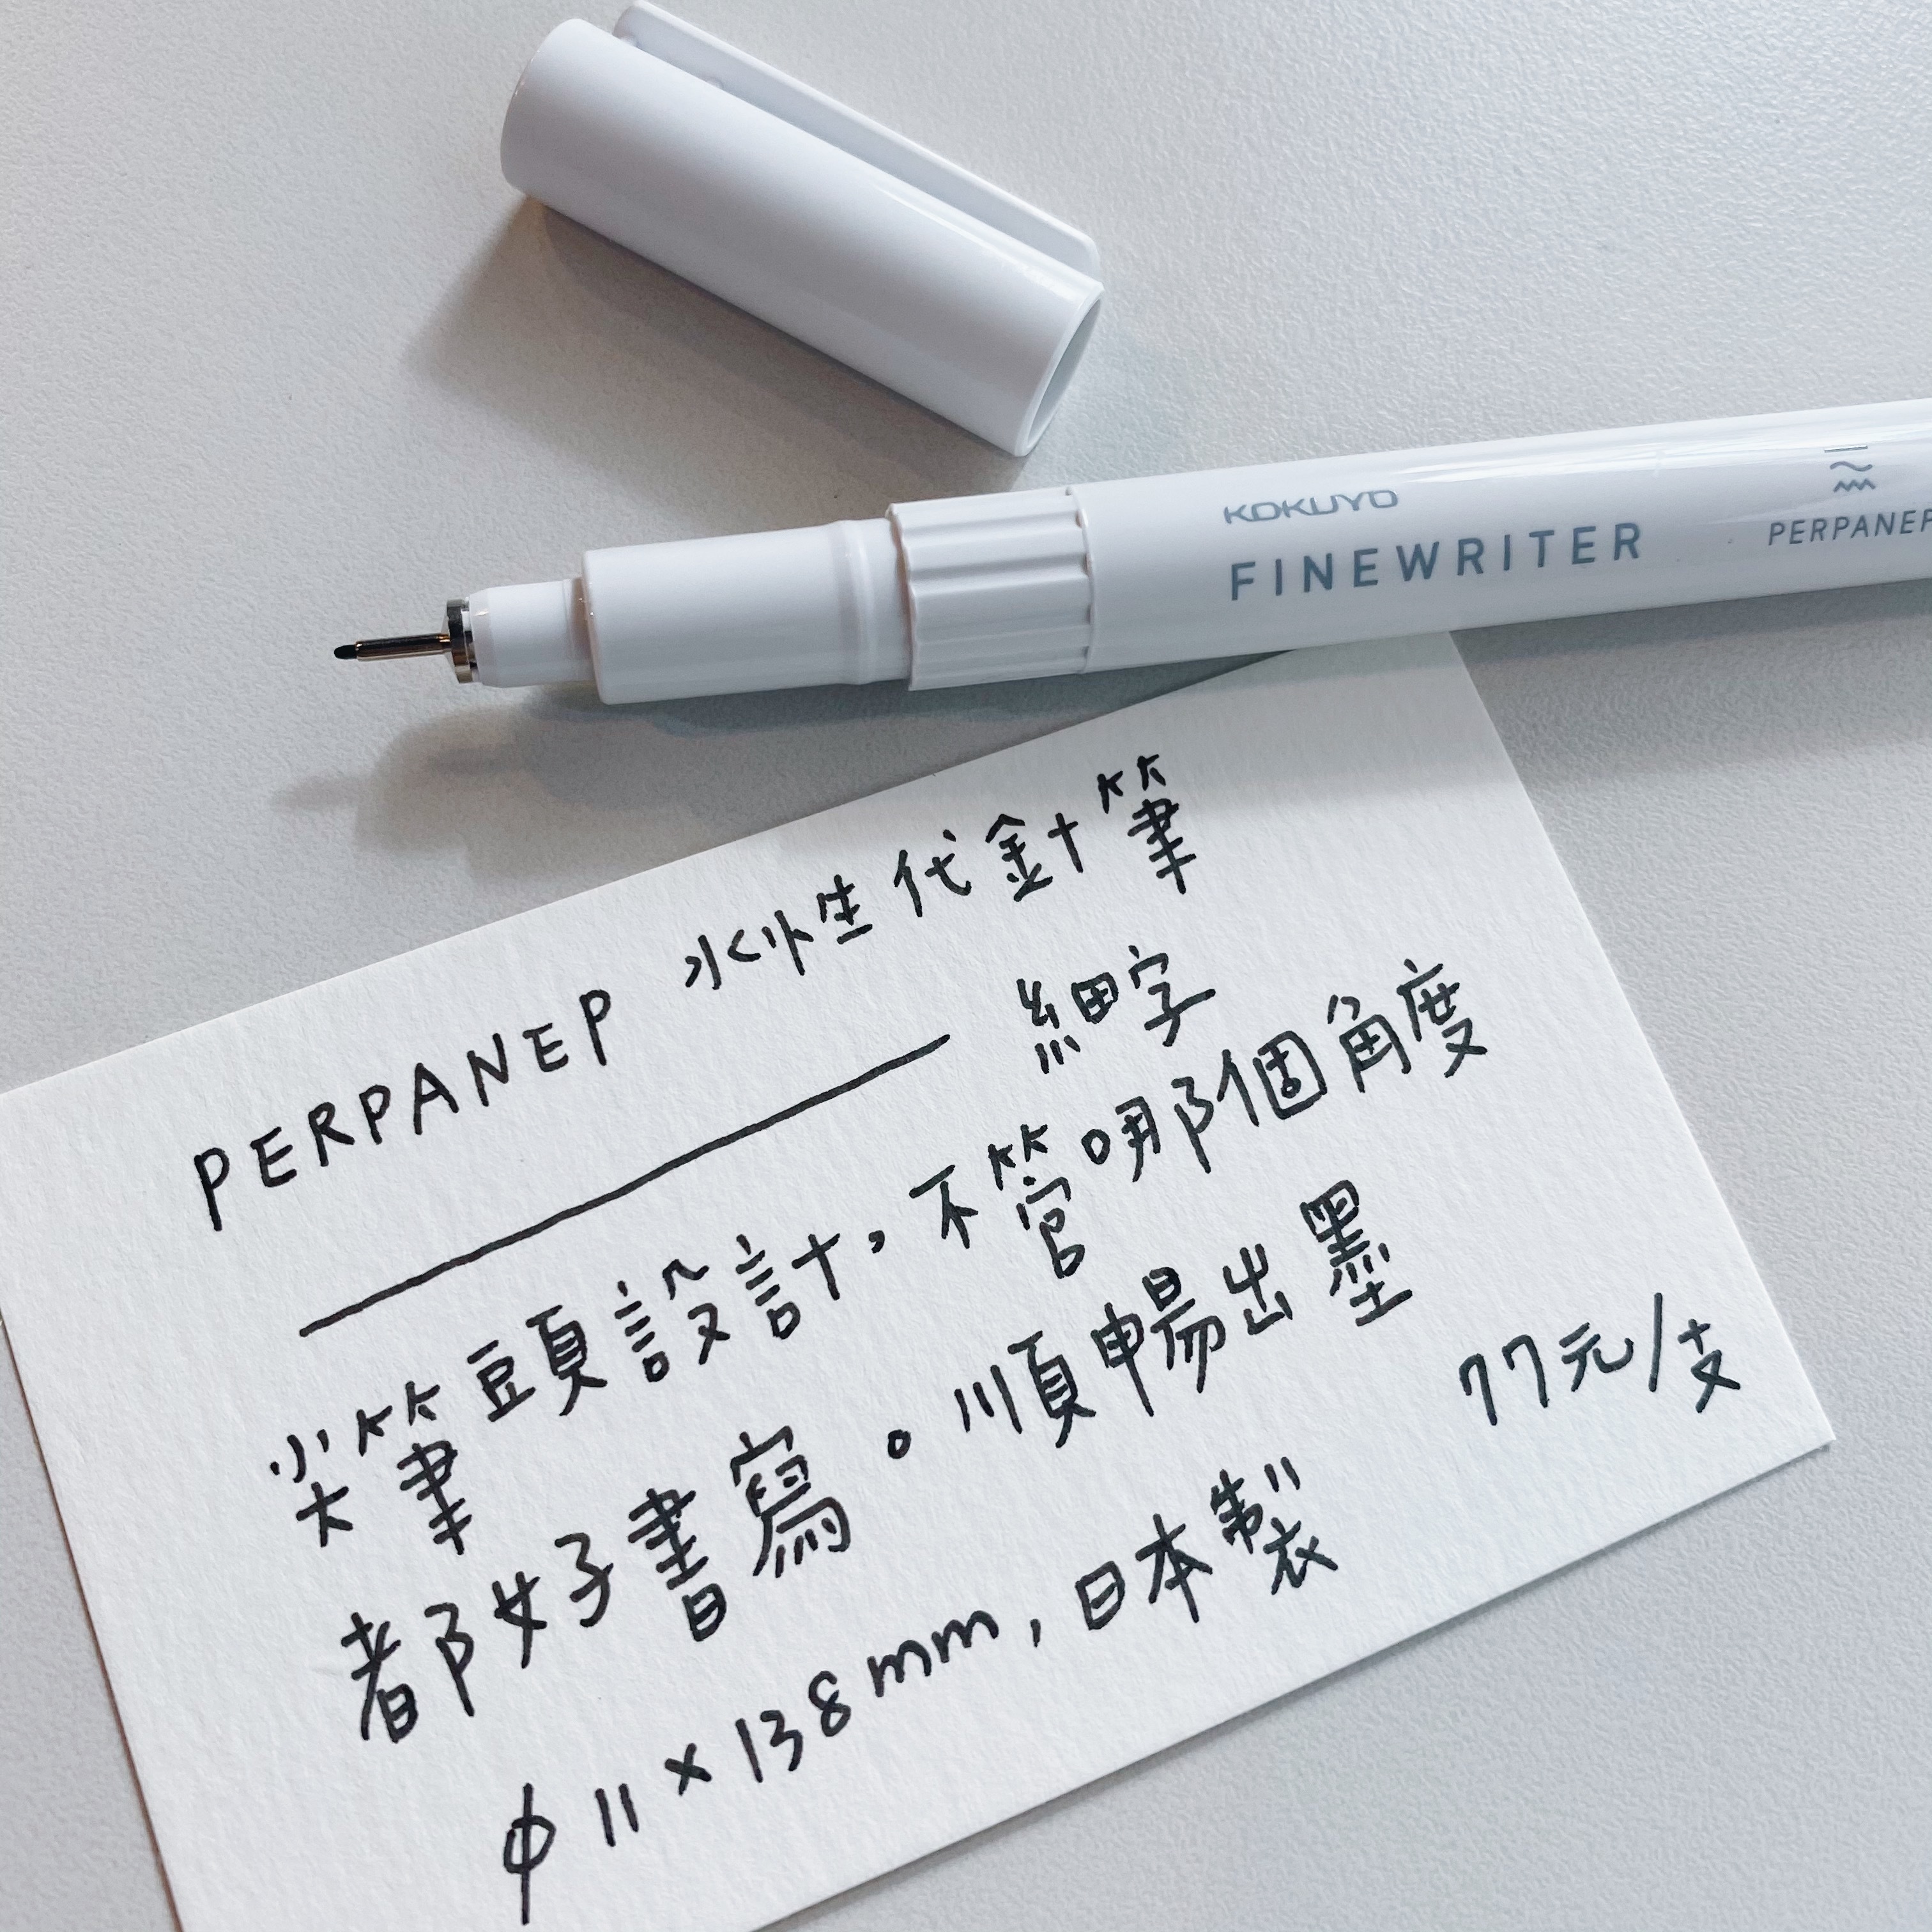 KOKUYO
FINEWRITER
PERPANEP
PERPANEP 水性代針筆
細字
尖筆頭設計，不管哪個角度
都好書寫。順暢出墨
φ11×138mm，日本製
77元/支